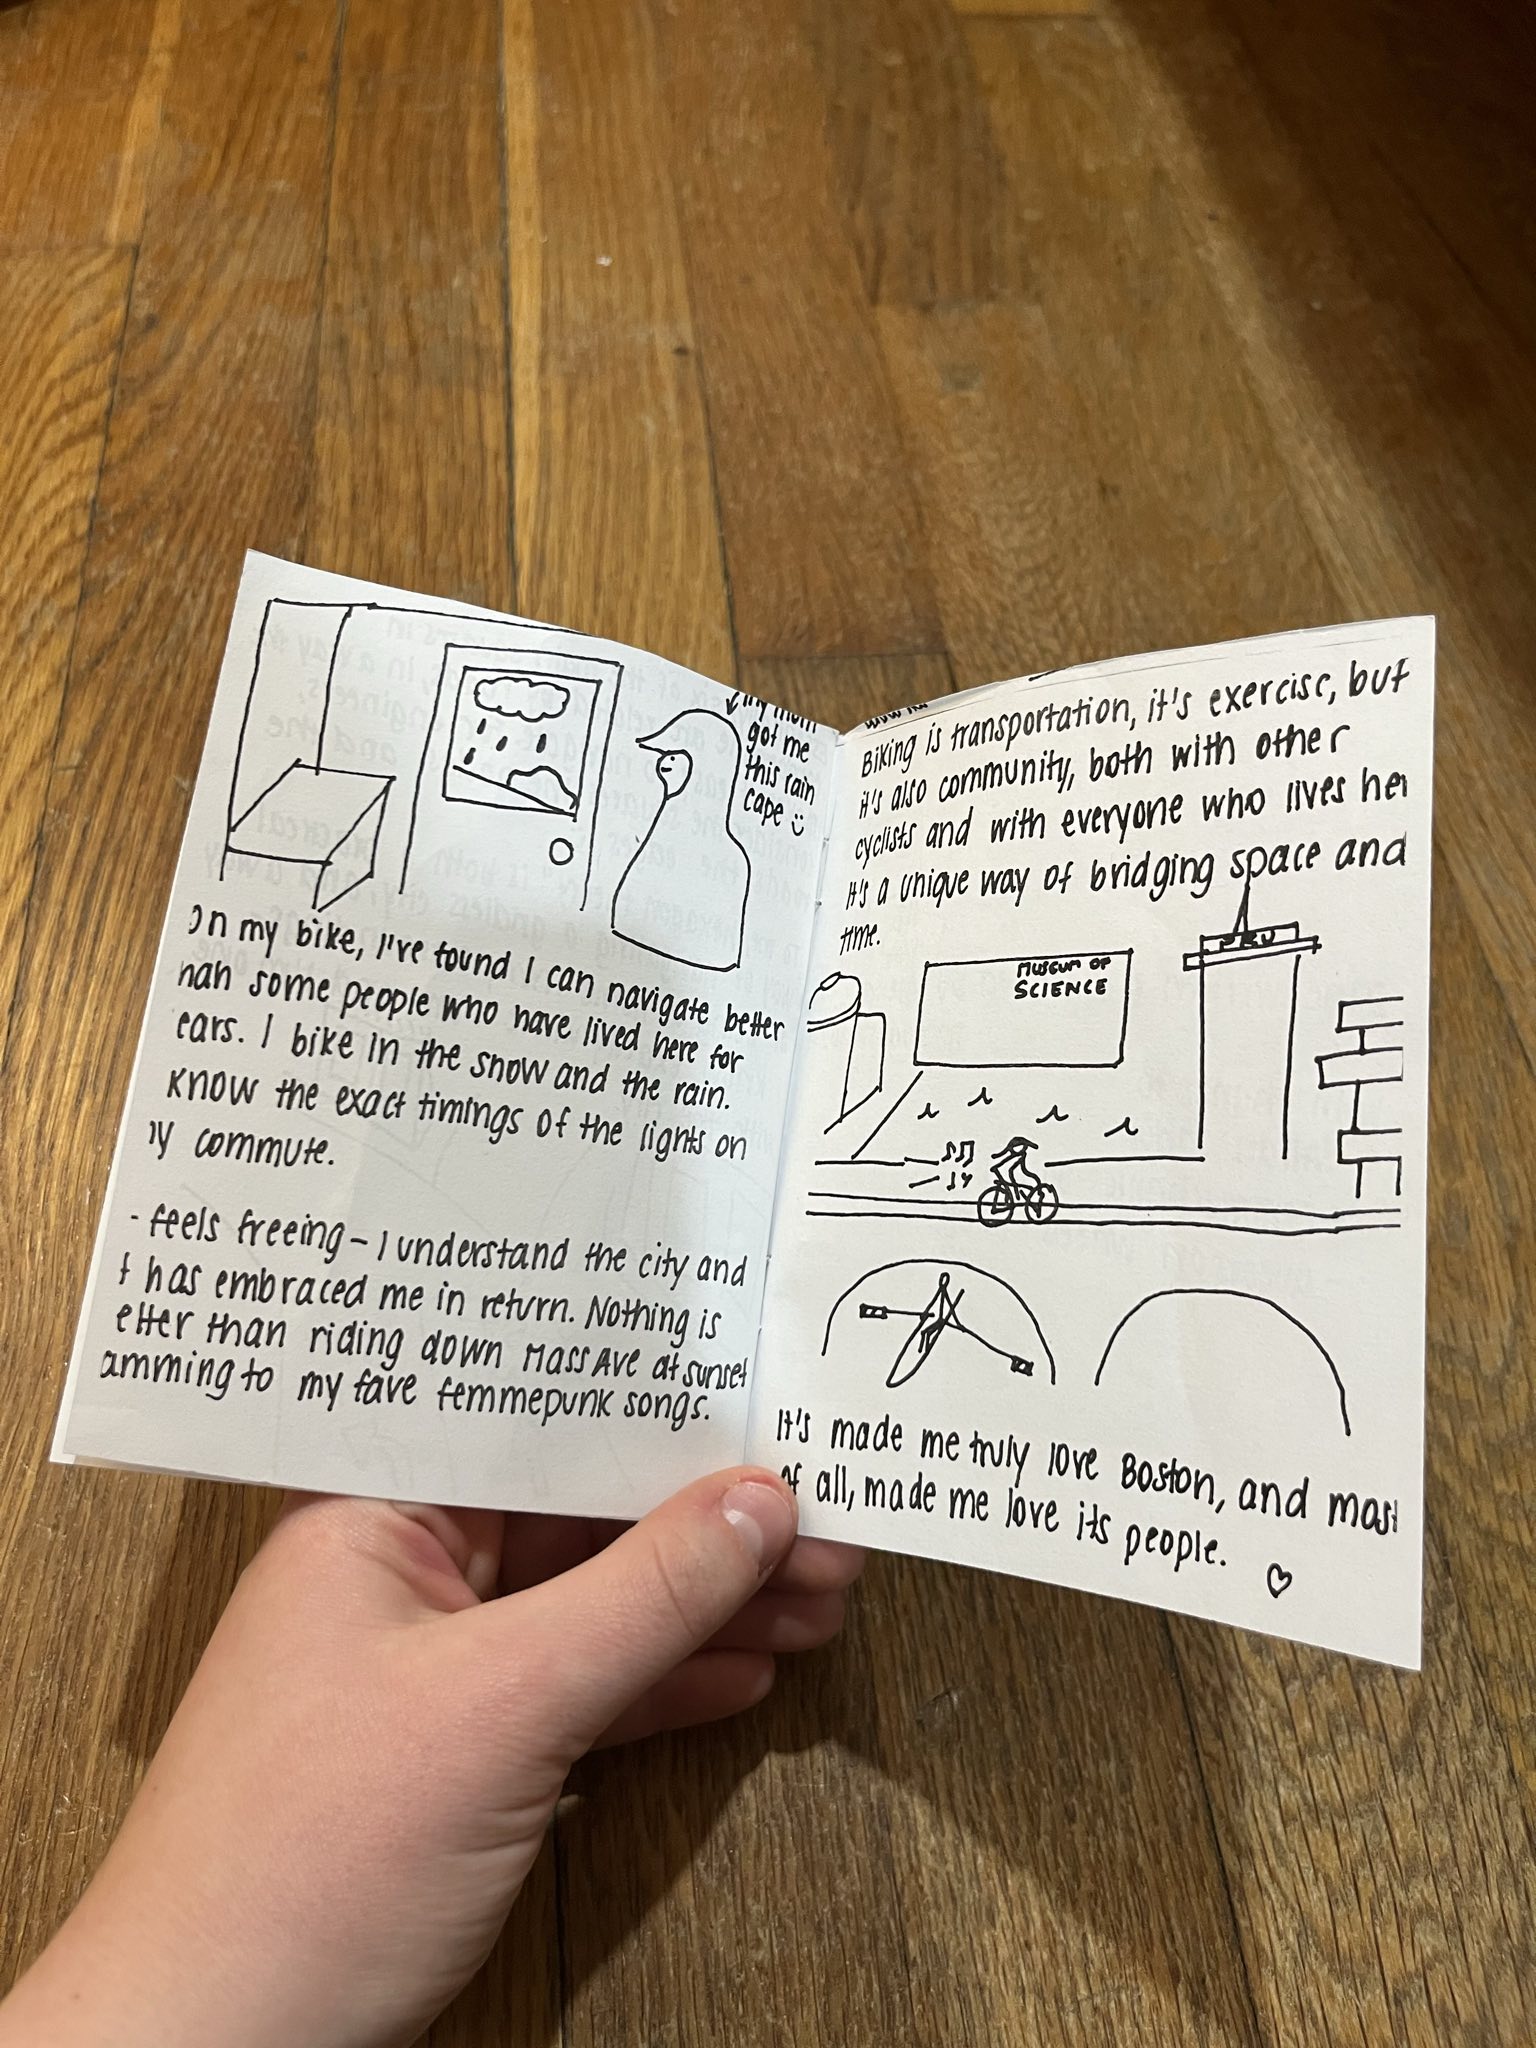 my mom
got me
this rain
cape
On my bike, I've found I can navigate better
han some people who have lived here for
ears. I bike in the snow and the rain.
know the exact timings of the lights on
y commute.
feels freeing – I understand the city and
t has embraced me in return. Nothing is
etter than riding down Mass Ave at sunset
amming to my fave femmepunk songs.
Biking is transportation, it's exercise, but
it's also community, both with other
cyclists and with everyone who lives her
It's a unique way of bridging space and
time.
MUSEUM OF
SCIENCE
PRU
It's made me truly love Boston, and most
of all, made me love its people.